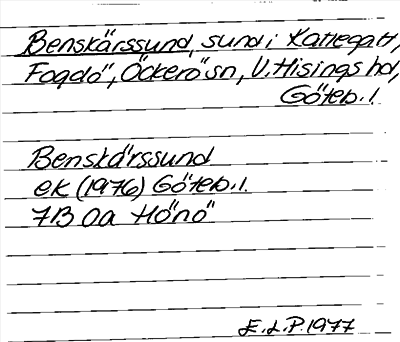 Benskärssund, sund i Kattegatt,
Fogdö, Öckerö sn, V. Hisings hd,
Göteb. l.
Benskärssund
ek (1976) Göteb. l.
7B 0a Hönö
E.L.P. 1977